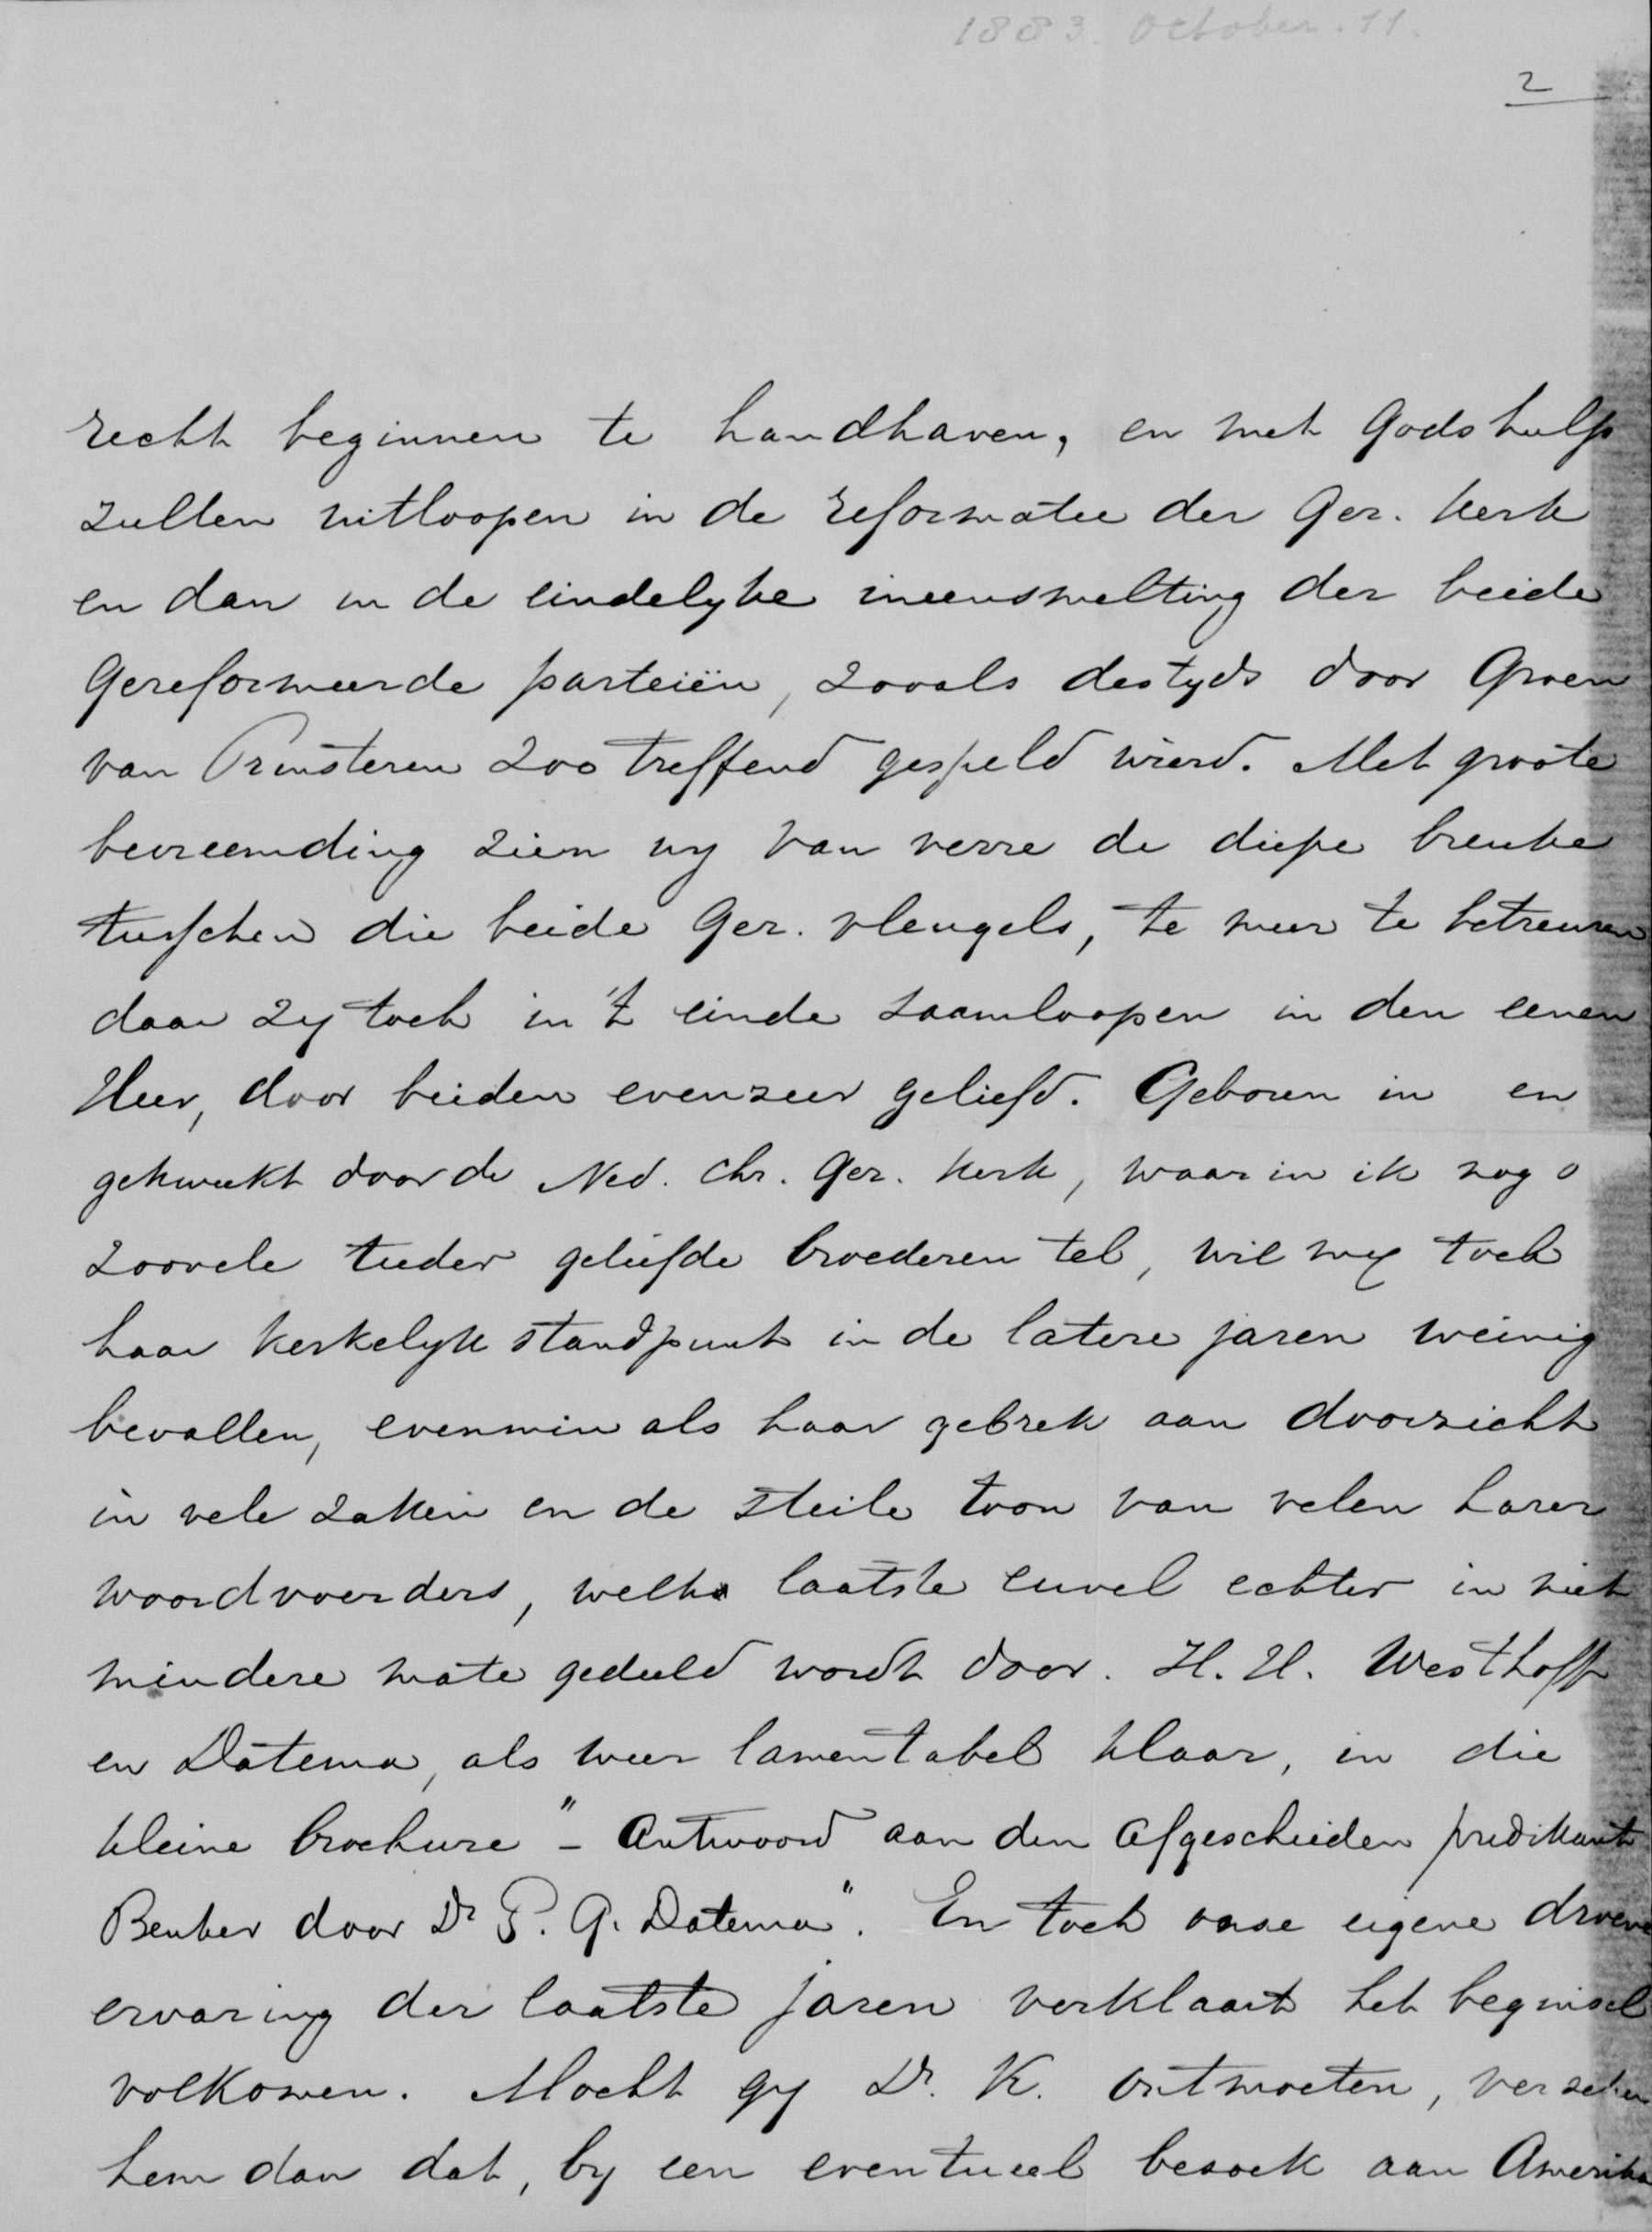 1883. October. 11.
2
recht beginnen te handhaven, en met Gods hulp
zullen uitloopen in de reformatie der Ger. Kerk
en dan in de eindelyke ineensmelting der beide
Gereformeerde parteiën, zooals destyds door Groen
van Prinsteren zoo treffend gespeld wierd. Met groote
bevreemding zien wy van verre de diepe breuke
tusschen die beide Ger. vleugels, te meer te betreuren
daar zy toch in 't einde zaamloopen in den eenen
Heer, door beiden evenzeer geliefd. Geboren in en
gekweekt door de Ned. Chr. Ger. Kerk, waarin ik nog
zoovele teeder geliefde broederen tel, wil my toch
haar kerkelyk standpunt in de latere jaren weinig
bevallen, evenmin als haar gebrek aan doorzicht
in vele zaken en de steile toon van velen harer
woordvoerders, welke laatste euvel echter in niet
mindere mate gedeeld wordt door. H. H. Westhoff
en Datema, als weer lamentabel klaar, in die
kleine brochure "- Antwoord aan den afgescheiden predikant
Beuker door Dr P. G. Datema". En toch onze eigene droeve
ervaring der laatste jaren verklaart het beginsel
volkomen. Mocht gy Dr. K. ontmoeten, verzeker
hem dan dat, by een eventueel bezoek aan Amerika